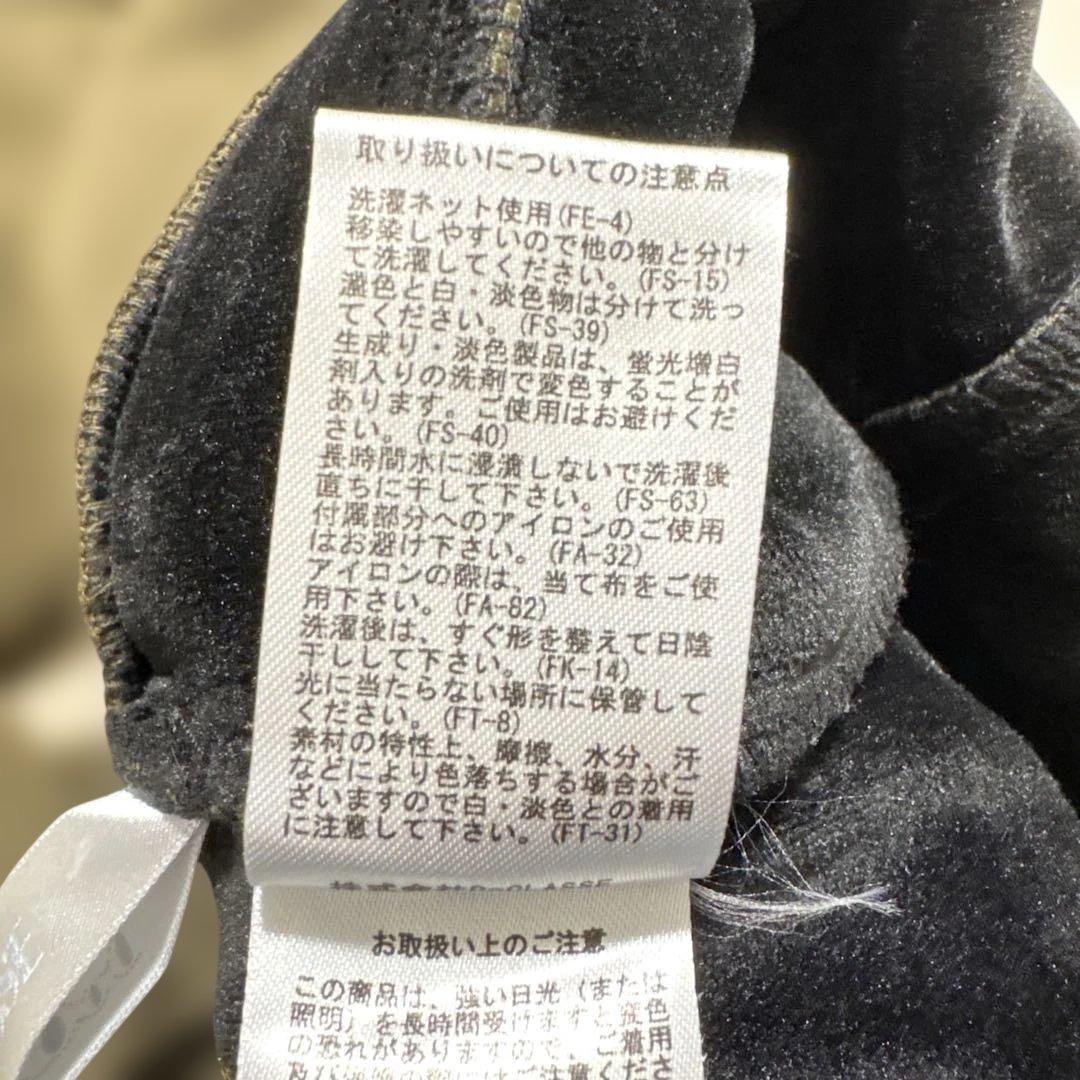 取り扱いについての注意点
洗濯ネット使用(FE-4)
移染しやすいので他の物と分け
て洗濯してください。(FS-15)
濃色と白・淡色物は分けて洗っ
てください。(FS-39)
生成り・淡色製品は、蛍光増白
剤入りの洗剤で変色することが
あります。ご使用はお避けくだ
さい。(FS-40)
長時間水に浸漬しないで洗濯後
直ちに干して下さい。(FS-63)
付属部分へのアイロンのご使用
はお避け下さい。(FA-32)
アイロンの際は、当て布をご使
用下さい。(FA-82)
洗濯後は、すぐ形を整えて日陰
干しして下さい。(FK-14)
光に当たらない場所に保管して
ください。(FT-8)
素材の特性上、摩擦、水分、汗
などにより色落ちする場合がご
ざいますので白・淡色との着用
に注意して下さい。(FT-31)
お取扱い上のご注意
この商品は、強い日光(または
照明)を長時間受けますと変色
の恐れがありますので、ご着用